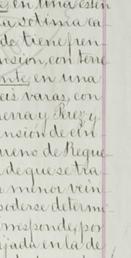 e, en una esten
la sotima ca
do, tiene fren
nsion, con terre
ente, en una
eis varas, con
herra y Perez y
nsion de cin
rreno de Reque
de que se tra
a minor vein
poderse determi
rresponde, por
ijada en la de